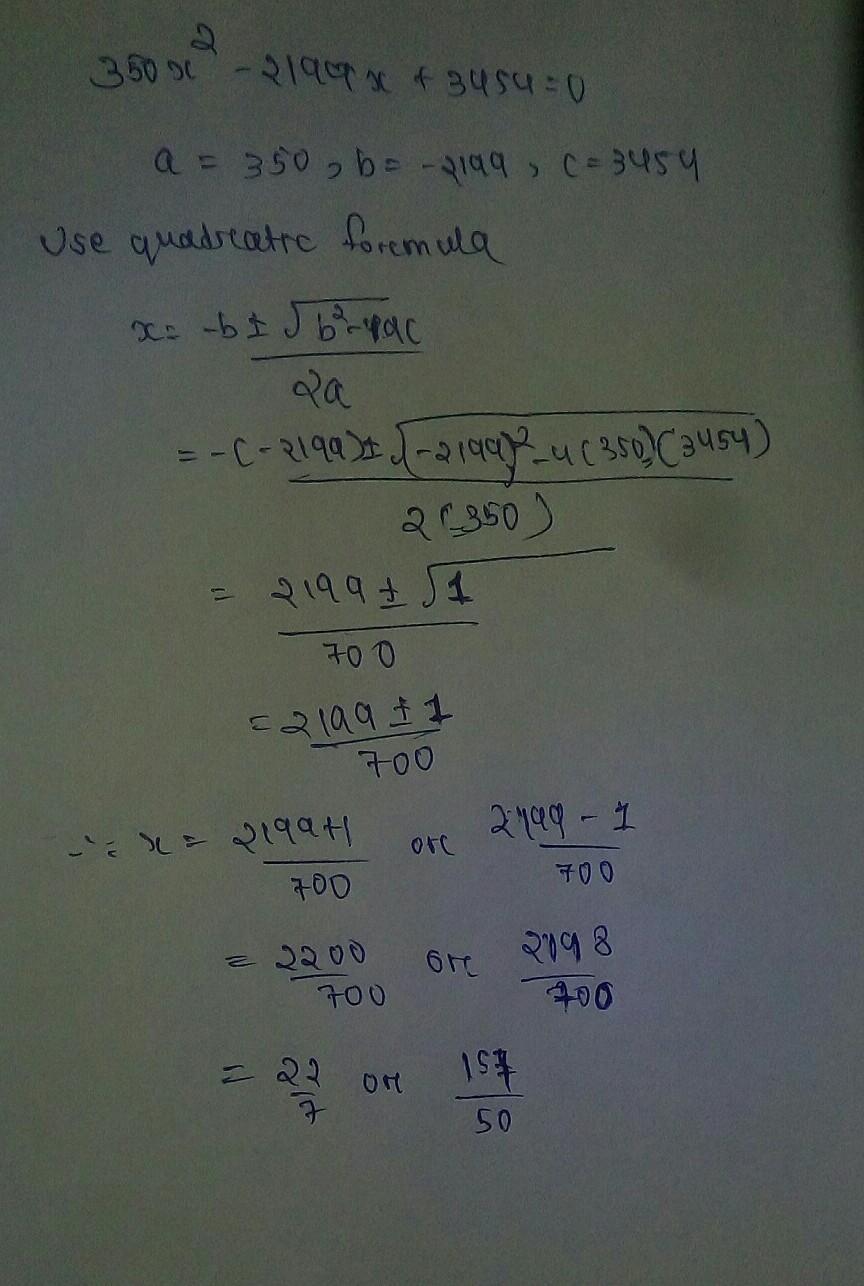 350x² - 2199x + 3454 = 0
a = 350, b = -2199, c = 3454
Use quadratic formula
x = -b ± √b²-4ac
2a
= -(-2199) ± √(-2199)² - 4(350)(3454)
2(350)
= 2199 ± √1
700
= 2199 ± 1
700
∴ x = 2199+1 or 2199 - 1
700 700
= 2200 or 2198
700 700
= 22 or 157
7 50